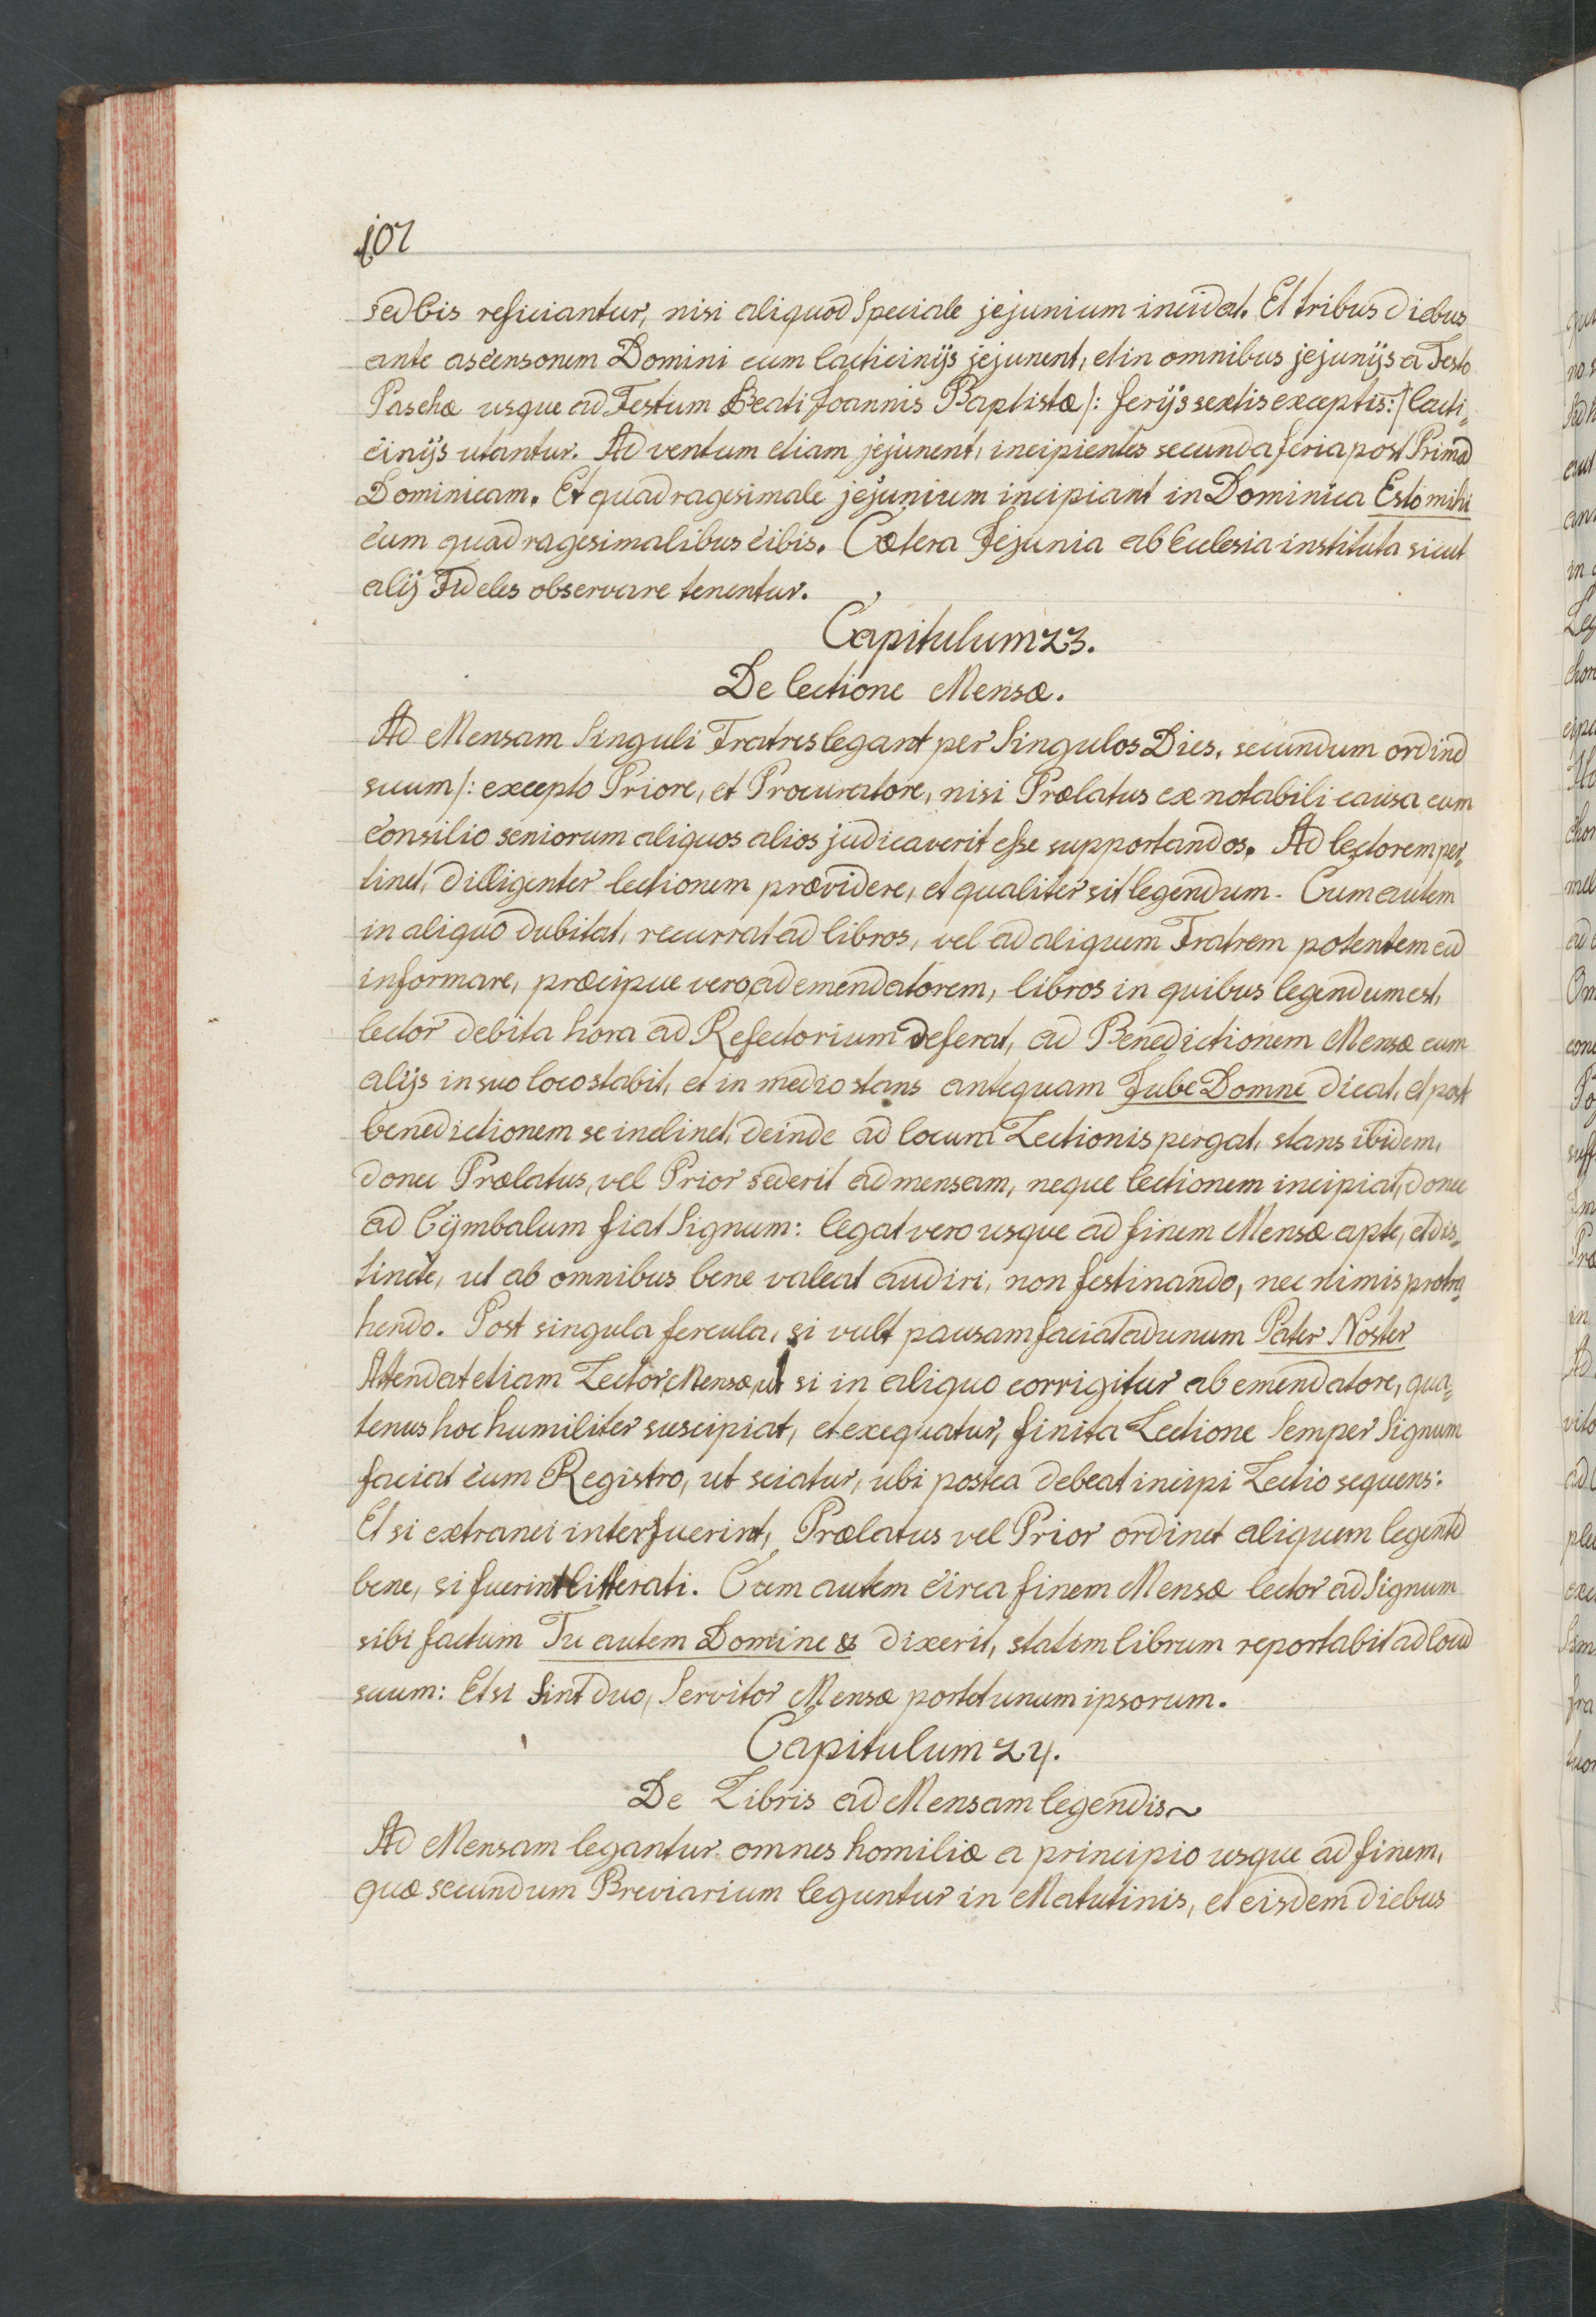 107
sed bis reficiantur, nisi aliquod Speciale jejunium incidat. Et tribus diebus
ante ascensonem Domini cum lacticinijs jejunent, et in omnibus jejunijs a Festo
Paschæ usque ad Festum Beati Joannis Baptistæ /: ferijs sextis exceptis: / lacti=
cinijs utantur. Adventum etiam jejunent, incipientes secunda feria post Primã
Dominicam. Et quadragesimale jejunium incipiant in Dominica Esto mihi
cum quadragesimalibus cibis. Cætera Jejunia ab Ecclesia instituta sicut
alij Fideles observare tenentur.
Capitulum 23.
De lectione Mensæ.
Ad Mensam Singuli Fratres legant per Singulos Dies, secundum ordinẽ
suum /: excepto Priore, et Procuratore, nisi Prælatus ex notabili causa cum
consilio seniorum aliquos alios judicaverit esse supportandos. Ad lectorem per=
tinet, dilligenter lectionem prævidere, et qualiter sit legendum. Cum autem
in aliquo dubitat, recurrat ad libros, vel ad aliquem Fratrem potentem eũ
informare, præcipue vero, ad emendatorem, libros in quibus legendum est,
lector debita hora ad Refectorium deferat, ad Benedictionem Mensæ cum
alijs in suo loco stabit, et in medio stans antequam Jube Domne dicat, et post
benedictionem se inclinet, deinde ad locum Lectionis pergat, stans ibidem,
donec Prælatus, vel Prior sederit ad mensam, neque lectionem incipiat, donec
ad Cÿmbalum fiat Signum: legat vero usque ad finem Mensæ apte, et dis=
tincte, ut ab omnibus bene valeat audiri, non festinando, nec nimis protra=
hendo. Post singula fercula, si vult pausam faciat ad unum Pater Noster
Attendat etiam Lector Mensæ, ut si in aliquo corrigitur ab emendatore, qua=
tenus hoc humiliter suscipiat, et exequatur, finita Lectione Semper Signum
faciat cum Registro, ut sciatur, ubi postea debeat incipi Lectio sequens:
Et si extranei interfuerint, Prælatus vel Prior ordinet aliquem legentẽ
bene, si fuerint litterati. Cum autem circa finem Mensæ lector ad Signum
sibi factum Tu autem Domine & dixerit, statim librum reportabit ad locũ
suum: Et si Sint duo, Servitor Mensæ portet unum ipsorum.
Capitulum 24.
De Libris ad Mensam legendis~
Ad Mensam legantur omnes homiliæ a principio usque ad finem,
quæ secundum Breviarium leguntur in Matutinis, et eisdem diebus